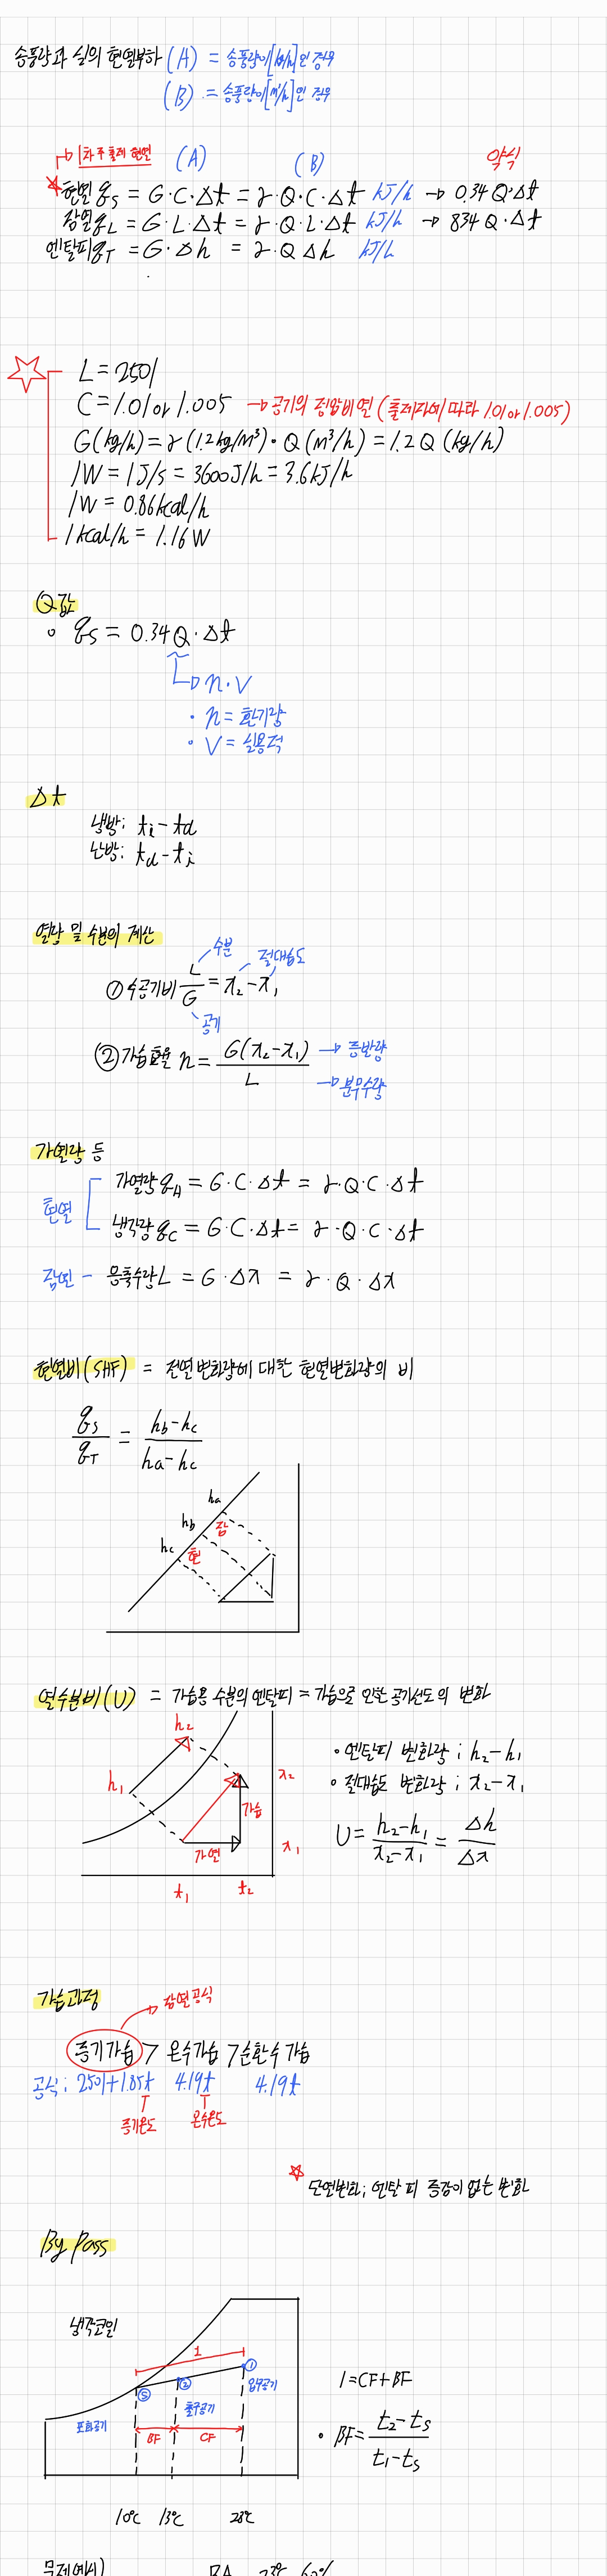 송풍량과 실의 현열부하 (A) = 송풍량이 [kg/h]인 경우
(B) = 송풍량이 [m³/h]인 경우
→ 1차 주 출제 현열 (A) (B) 약식
☆ 현열 qs = G·C·Δt = γ·Q·C·Δt kJ/h → 0.34 Q·Δt
잠열 qL = G·L·Δt = γ·Q·L·Δt kJ/h → 834 Q·Δt
엔탈피 qT = G·Δh = γ·Q Δh kJ/L
L = 2501
C = 1.01 or 1.005 → 공기의 정압비열 (출제자에 따라 1.01 or 1.005)
G(kg/h) = γ(1.2kg/m³)·Q(m³/h) = 1.2Q (kg/h)
1W = 1J/s = 3600J/h = 3.6kJ/h
1W = 0.86kcal/h
1kcal/h = 1.16W
Q값
∘ qs = 0.34Q·Δt
→ n·V
• n = 환기량
∘ V = 실용적
Δt
냉방; ti - td
난방; td - ti
열량 및 수분의 계산
수분 절대습도
① 수공기비 L/G = x₂ - x₁
공기
② 가습효율 n = G(x₂-x₁)/L → 증발량
→ 분무수량
가열량 등
현열 가열량 qH = G·C·Δt = γ·Q·C·Δt
냉각량 qC = G·C·Δt = γ·Q·C·Δt
잠열 - 응축수량 L = G·Δx = γ·Q·Δx
현열비(SHF) = 전열변화량에 대한 현열변화량의 비
qs/qT = hb-hc/ha-hc
ha
hb 잠
hc 현
열수분비(U) = 가습용 수분의 엔탈피 = 가습으로 인한 공기선도의 변화
h₂
h₁
x₂
가습
가열
x₁
t₁ t₂
• 엔탈피 변화량; h₂-h₁
• 절대습도 변화량; x₂-x₁
U = h₂-h₁/x₂-x₁ = Δh/Δx
가습과정 → 잠열공식
증기가습 > 온수가습 > 순환수가습
공식; 2501+1.85t 4.19t 4.19t
증기온도 온수온도
☆ 단열변화; 엔탈피 증감이 없는 변화
By Pass
냉각코일
1
① 입구공기
② 출구공기
Ⓢ 포화공기
BF CF
1 = CF+BF
• BF = t₂-ts/t₁-ts
10℃ 13℃ 28℃
문제예시)